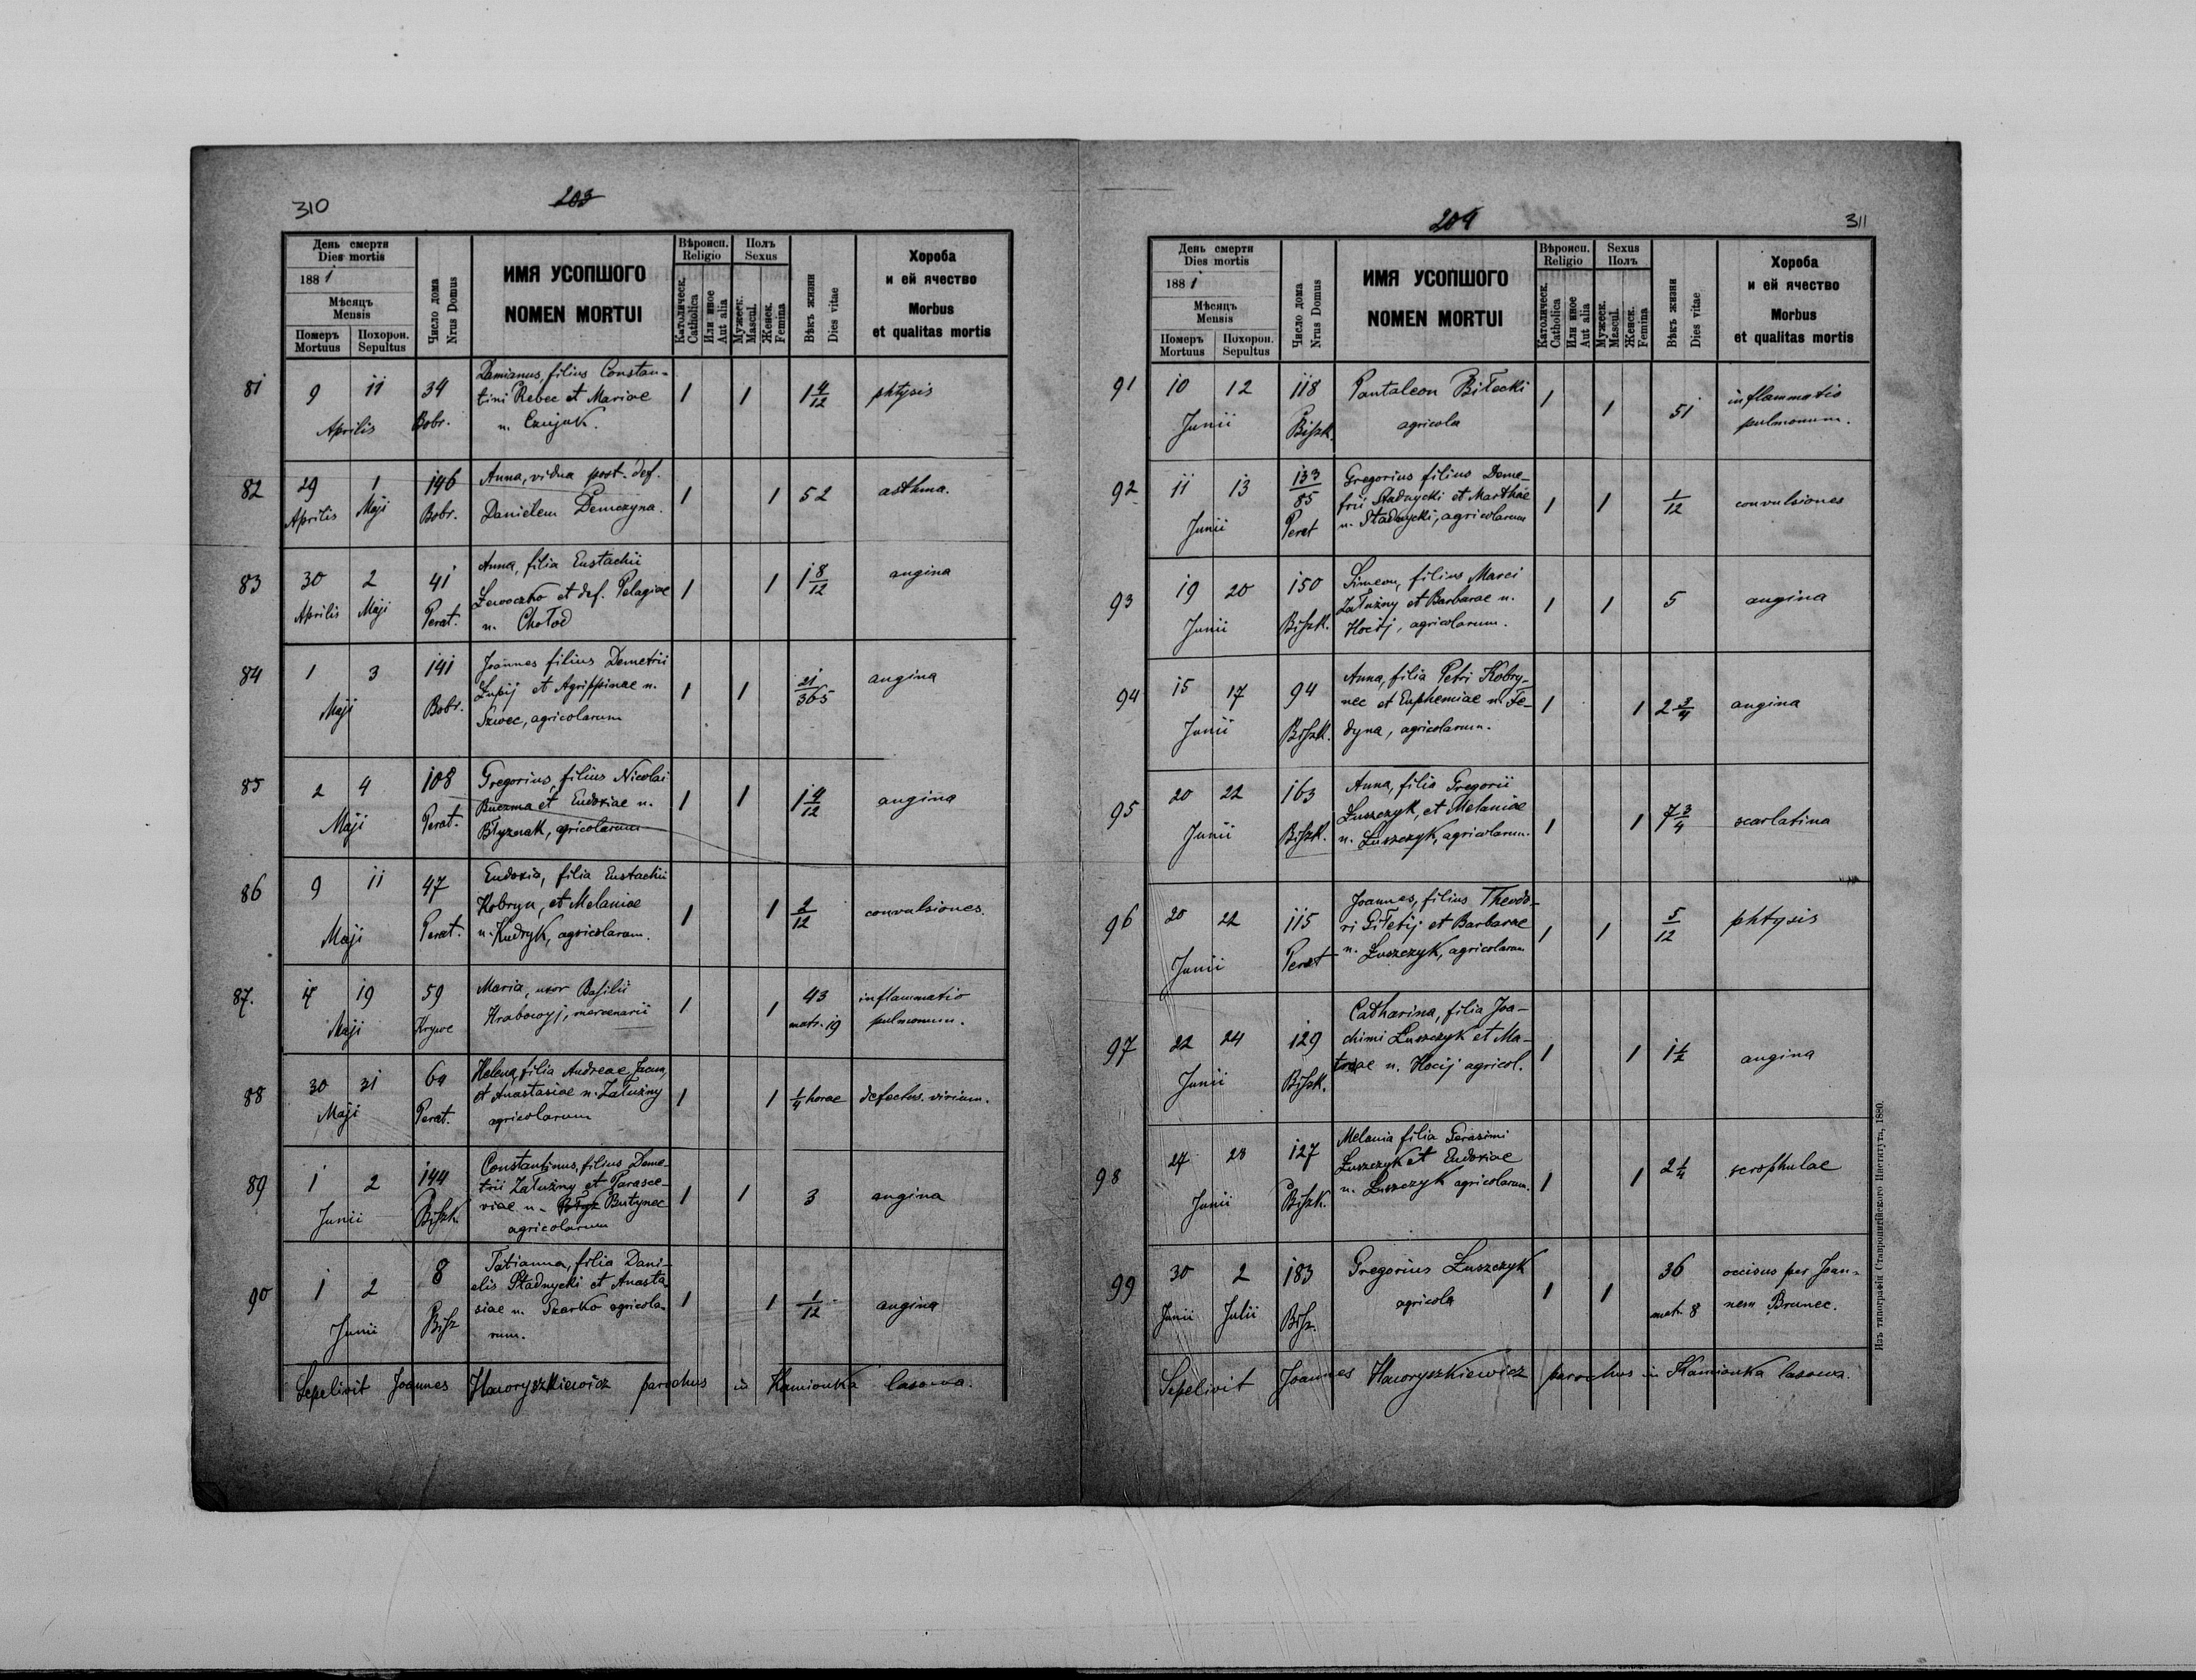 310
203
День смерти
Dies mortis
1881
Мѣсяцъ
Mensis
Померъ
Mortuus
Похорон.
Sepultus
Число дома
Nrus Domus
ИМЯ УСОПШОГО
NOMEN MORTUI
Вѣроисп.
Religio
Католическ.
Catholica
Или иное
Aut alia
Полъ
Sexus
Мужеск.
Mascul.
Женск.
Femina
Вѣкъ жизни
Dies vitae
Хороба
и ей ячество
Morbus
et qualitas mortis
81 9 11 34 Damianus, filius Constan-
tini Rebec et Mariae
Aprilis Bobr. n. Czujuk.
1 1 1 4/12 phtysis
82 29 1 146 Anna, vidua post. def.
Aprilis Maji Bobr. Danielem Demczyna.
1 1 52 asthma.
83 30 2 41 Anna, filia Eustachii
et def. Pelagiae
Aprilis Maji Perat. n. Chołod
1 1 1 8/12 angina
84 1 3 141 Joannes filius Demetrii
Łupij et Agrippinae n.
Maji Bobr. Szwec, agricolarum
1 1 21/365 angina
85 2 4 108 Gregorius, filius Nicolai
Buczma et Eudoxiae n.
Maji Perat. Błyznak, agricolarum
1 1 1 4/12 angina
86 9 11 47 Eudoxia, filia Eustachii
Kobryn, et Melaniae
Maji Perat. n. Kudryk, agricolarum.
1 1 2/12 convulsiones.
87. 17 19 59 Maria, uxor Basilii
Maji Krywe Hrabowyj, mercenarii
1 1 43 matr. 19 inflammatio
pulmonum.
88 30 31 60 Helena, filia Andreae
et Anastasiae n. Załużny
Maji Perat. agricolarum
1 1 1/4 horae defectus virium.
89 1 2 144 Constantinus, filius Deme-
trii Załużny et Parasce-
Junii Biszk. viae n. Butynec
agricolarum
1 1 3 angina
90 1 2 8 Tatianna, filia Dani-
elis Stadnycki et Anasta
Junii Bisz siae n. Szarko agricola-
rum.
1 1 1/12 angina
Sepelivit Joannes Haworyszkiewicz parochus in Kamionka lasowa.
204
311
День смерти
Dies mortis
1881
Мѣсяцъ
Mensis
Померъ
Mortuus
Похорон.
Sepultus
Число дома
Nrus Domus
ИМЯ УСОПШОГО
NOMEN MORTUI
Вѣроисп.
Religio
Католическ.
Catholica
Или иное
Aut alia
Sexus
Полъ
Мужеск.
Mascul.
Женск.
Femina
Вѣкъ жизни
Dies vitae
Хороба
и ей ячество
Morbus
et qualitas mortis
91 10 12 118 Pantaleon Biłecki
Junii Biszk. agricola
1 1 51 inflammatio
pulmonum.
92 11 13 133/85 Gregorius filius Deme-
trii Stadnycki et Marthae
Junii Perat n. Stadnycki, agricolarum
1 1 1/12 convulsiones
93 19 20 150 Simeon, filius Marci
Załużny et Barbarae n.
Junii Biszk. Hocij, agricolarum.
1 1 5 angina
94 15 17 94 Anna, filia Petri Kobry-
nec et Euphemiae n. Fe-
Junii Biszk. dyna, agricolarum.
1 1 2 3/4 angina
95 20 22 163 Anna, filia Gregorii
Łuszczyk, et Melaniae
Junii Biszk. n. Łuszczyk, agricolarum.
1 1 7 3/4 scarlatina
96 20 22 115 Joannes, filius Theodo-
ri Giłetij et Barbarae
Junii Perat n. Łuszczyk, agricolarum
1 1 5/12 phtysis
97 22 24 129 Catharina, filia Joa-
chimi Łuszczyk et Ma-
Junii Biszk. n. Hocij agricol.
1 1 1 1/2 angina
98 27 28 127 Melania filia Gerasimi
Łuszczyk et Eudoxiae
Junii Biszk. n. Łuszczyk agricolarum.
1 1 2 1/4 scrophulae
99 30 2 183 Gregorius Łuszczyk
Junii Julii Bisz. agricola
1 1 36 matr. 8 occisus per Joan-
nem Brunec.
Sepelivit Joannes Haworyszkiewicz parochus in Kamionka lasowa.
Изъ типографіи Ставропигійского Института, 1880.